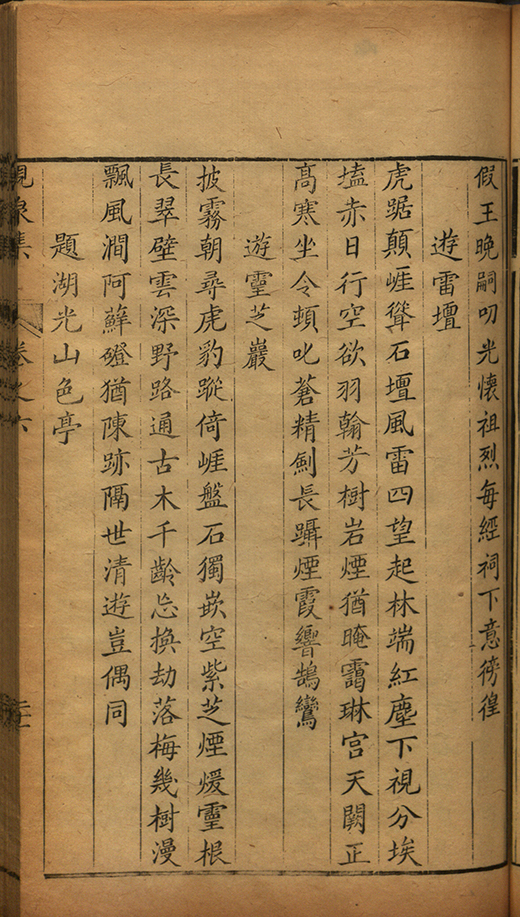 假王晚嗣叨光懷祖烈每經祠下意徬徨
遊雷壇
虎踞顛崕聳石壇風雷四望起林端紅塵下視分埃
壒赤日行空欲羽翰芳樹岩煙猶晻靄琳宮天闕正
高寒坐令頓叱蒼精劍長躡煙霞響鵠鸞
遊靈芝巖
披霧朝尋虎豹蹤倚崕盤石獨嵌空紫芝煙煖靈根
長翠壁雲深野路通古木千齡忘換劫落梅幾樹漫
飄風澗阿蘚磴猶陳跡隔世清遊豈偶同
題湖光山色亭
峴泉集 卷之六